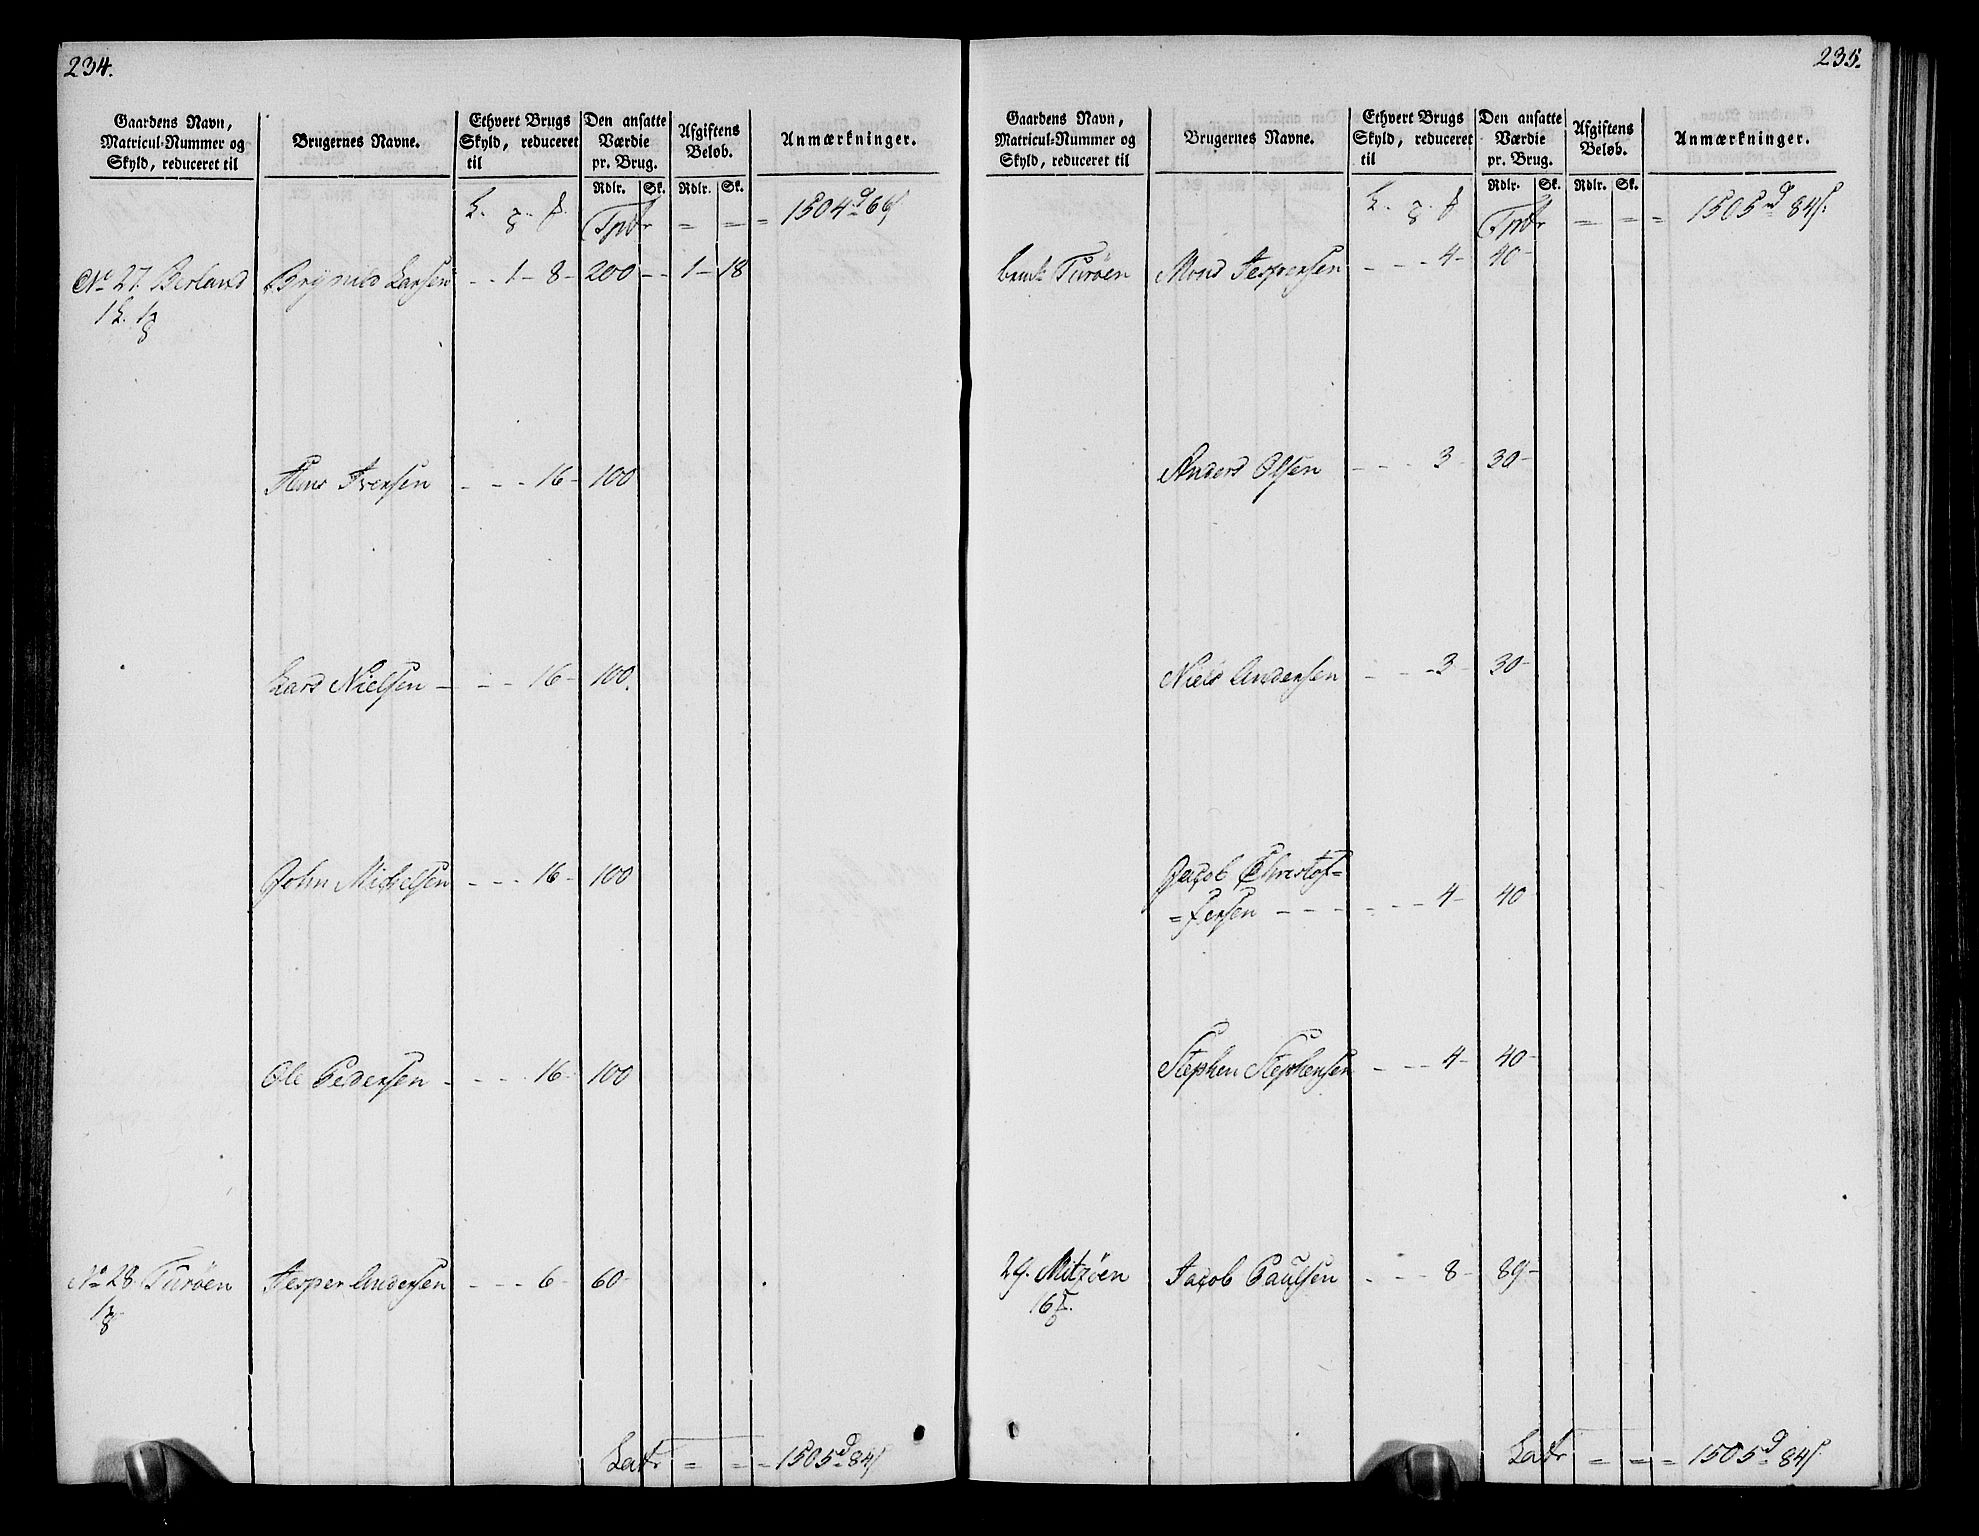 234.
Gaardens Navn,
Matricul-Nummer og
Skyld, reduceret til
Brugernes Navne.
Ethvert Brugs
Skyld, reduceret
til
Den ansatte
Værdie
pr. Brug.
Rdlr. Sk.
Afgiftens
Beløb.
Rdlr. Sk.
Anmærkninger.
Tptr = = = 1504 d 66 s
No 27 Berland Brynild Larsen - - 1 - 8 - 200 - - 1 - 18
1 L.
Hans Iversen - - - 16 - 100
Lars Nielsen - - - 16 - 100.
John Michelsen - - - 16 - 100
Ole Pedersen - - - 16 - 100
No 28 Turöen Jesper Andersen - - - 6 - 60 -
Latr = = = 1505 d 84 s
235.
Gaardens Navn,
Matricul-Nummer og
Skyld, reduceret til
Brugernes Navne.
Ethvert Brugs
Skyld, reduceret
til
Den ansatte
Værdie
pr. Brug.
Rdlr. Sk.
Afgiftens
Beløb.
Rdlr. Sk.
Anmærkninger.
Tptr = = = 1505 d 84 s.
Turöen Mons Jespersen - - - 4 - 40 -
Anders Olsen - - - 3 - 30 -
Niels Andersen - - - 3 - 30 -
Jacob Christof=
=fersen - - - - - - 4 - 40
Stephen Stephensen - - - 4 - 40 -
29. Mitzöen Jacob Paulsen - - - 8 - 89 -
16
Latr = = = 1505 d 84 s